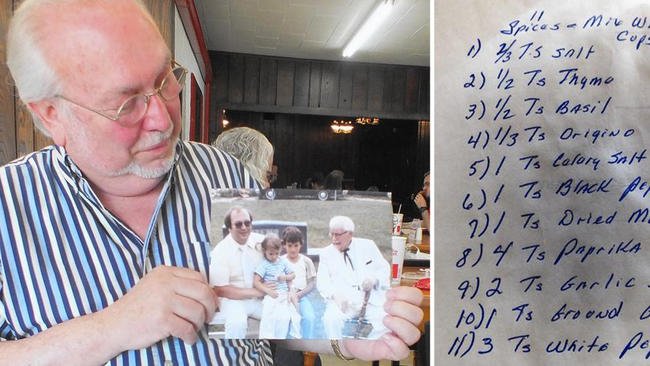 11
Spices - Mix W
Cups
1) 2/3 Ts Salt
2) 1/2 Ts Thyme
3) 1/2 Ts Basil
4) 1/3 Ts Origino
5) 1 Ts Celery Salt
6) 1 Ts Black Pep
7) 1 Ts Dried M
8) 4 Ts Paprika
9) 2 Ts Garlic S
10) 1 Ts Ground G
11) 3 Ts White Pep